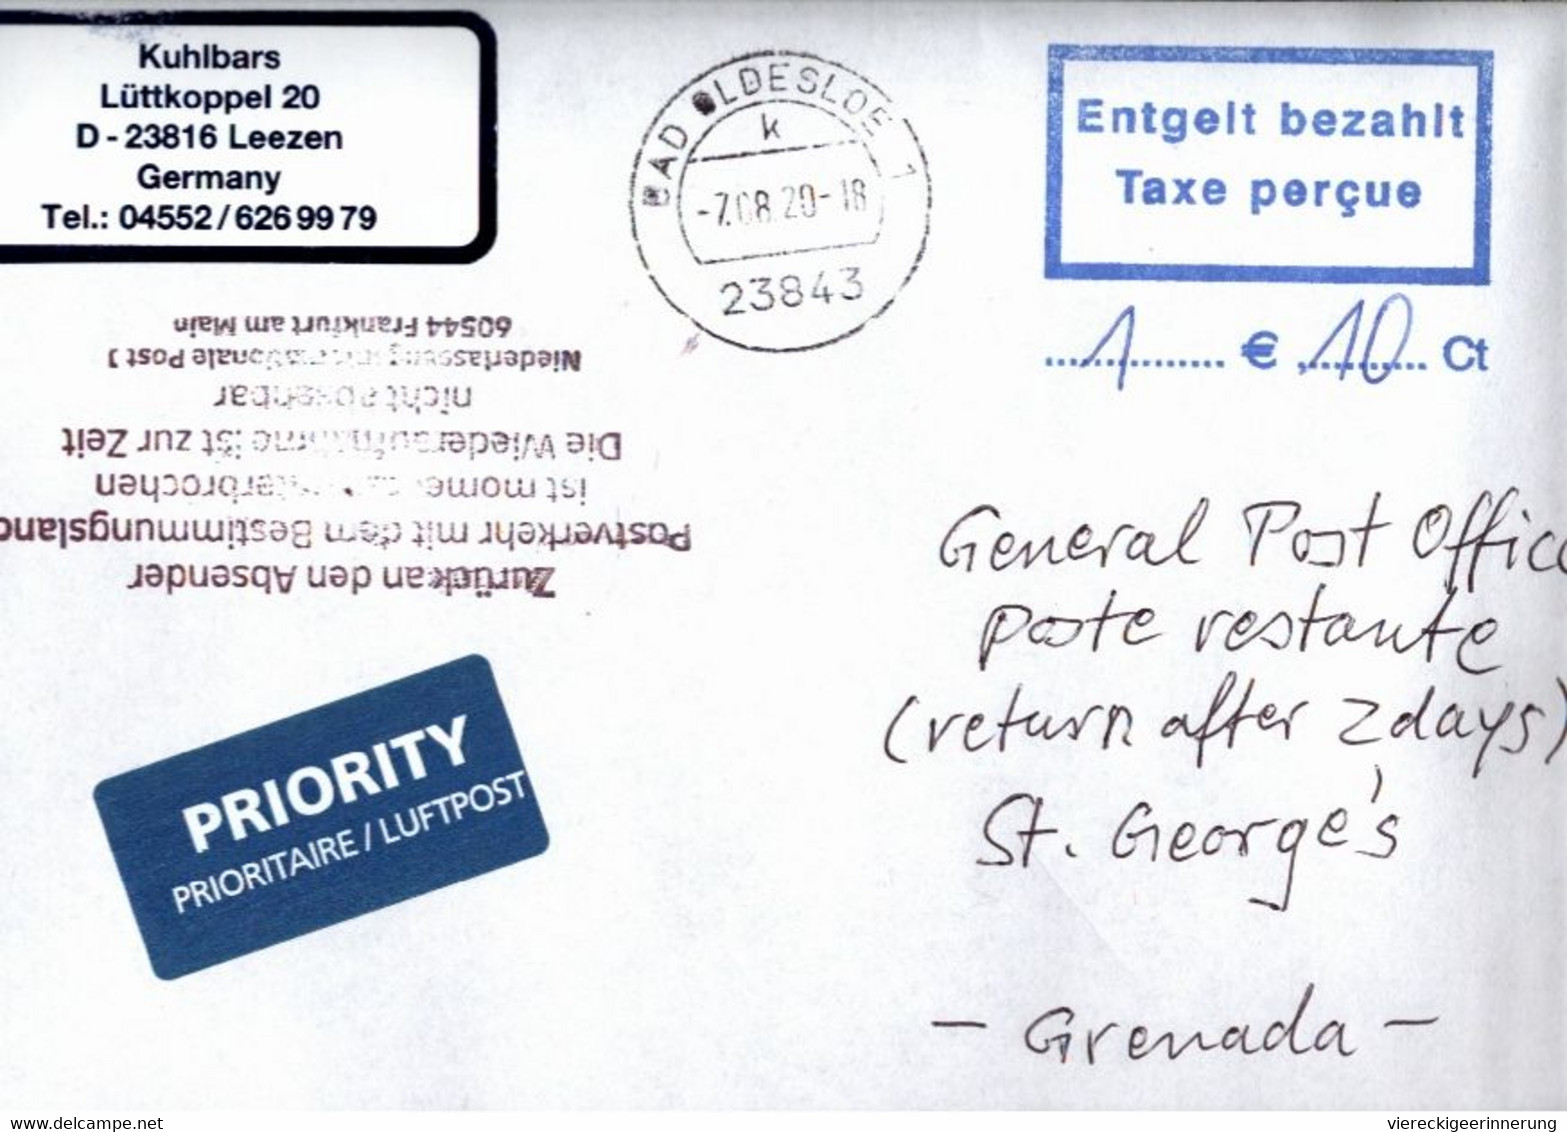 Kuhlbars
Lüttkoppel 20
D - 23816 Leezen
Germany
Tel.: 04552 / 626 99 79
BAD OLDESLOE 1
k
-7.08.20-18
23843
Entgelt bezahlt
Taxe perçue
1 € , 10 Ct
Zurück an den Absender
Postverkehr mit dem Bestimmungsland
ist momentan unterbrochen
Die Wiederaufnahme ist zur Zeit
nicht absehbar
Niederlassung Internationale Post
60544 Frankfurt am Main
General Post Office
poste restante
(return after 2 days)
St. George's
- Grenada -
PRIORITY
PRIORITAIRE / LUFTPOST
delcampe.net
viereckigeerinnerung